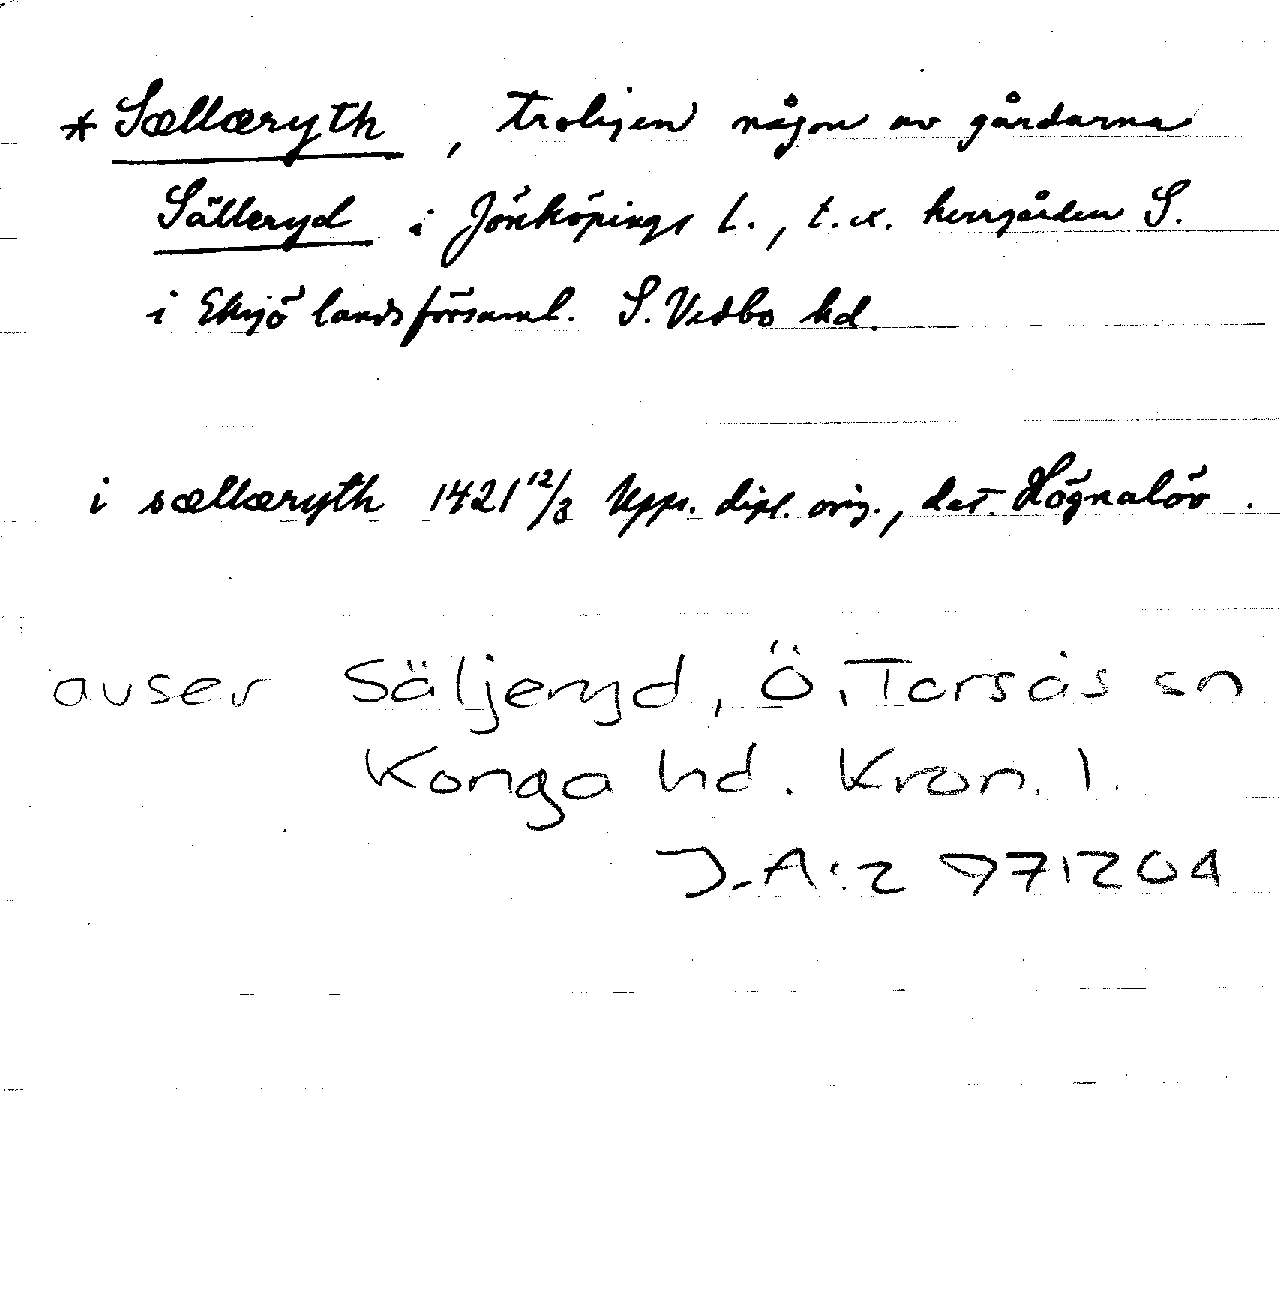 * Sællæryth, troligen någon av gårdarna
Sälleryd i Jönköpings l., t.ex. herrgården S.
i Eksjö landsförsaml. S. Vedbo hd.
i sællæryth 1421 12/3 Upps. dipl. orig., dat. Högnalöv.
avser Säljeryd, Ö. Torsås sn
Konga hd. Kron. l.
J.A:z 971204